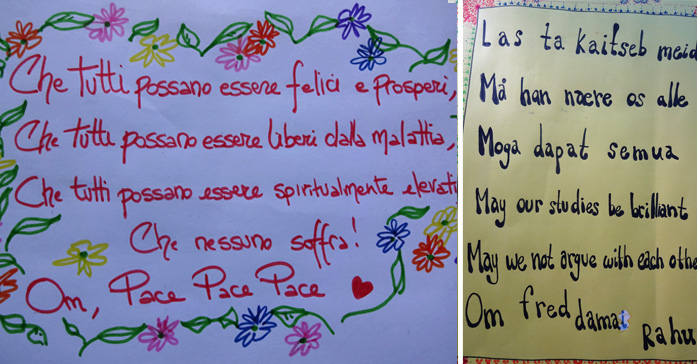 Che tutti possano essere felici e prosperi,
Che tutti possano essere liberi dalla malattia,
Che tutti possano essere spiritualmente elevati
Che nessuno soffra!
Om, Pace Pace Pace
Las ta kaitseb meid
Må han nære os alle
Moga dapat semua
May our studies be brilliant
May we not argue with each othe
Om fred damai
Rahu